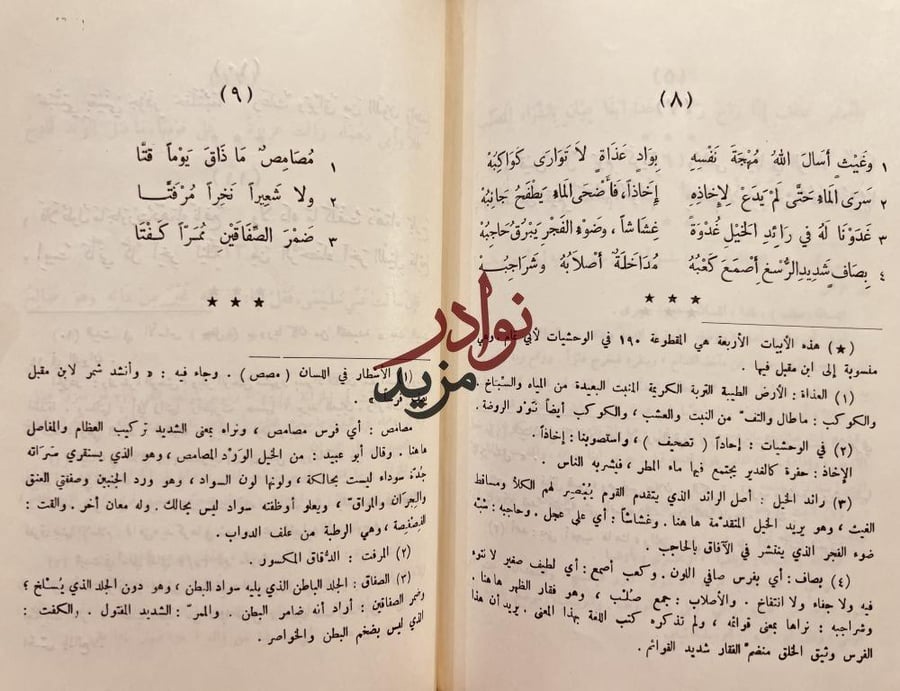 (٨)
١ وغَيْثٍ أسَالَ اللهُ مُهْجَةَ نَفْسِهِ بِوَادٍ عَذَاةٍ لاَ تَوَارَى كَوَاكِبُهْ
٢ سَرَى المَاءُ حَتَّى لَمْ يَدَعْ لإخاذِهِ إخَاذاً، فَأَضْحَى المَاءُ يَطْفَحُ جانِبُهْ
٣ غَدَوْنَا لَهُ في رَائِدِ الخَيْلِ غُدْوَةً غِشَاشاً، وضَوْءُ الفَجْرِ يَبْرُقُ حَاجِبُهْ
٤ بِصَافٍ شَدِيدِ الرُّسْغِ أصْمَعَ كَعْبُهُ مُدَاخَلَةٌ أصْلابُهُ وشَرَاجِبُهْ
★ ★ ★
(★) هذه الأبيات الأربعة هي المقطوعة ١٩٠ في الوحشيات لأبي تمام، وهي
منسوبة إلى ابن مقبل فيها.
(١) العذاة: الأرض الطيبة التربة الكريمة المنبت البعيدة من المياه والسّباخ.
والكوكب: ماطال والتفّ من النبت والعشب، والكوكب أيضاً نَوْر الروضة.
(٢) في الوحشيات: إحاذاً (تصحيف)، واستصوبنا: إخاذاً.
الإخاذ: حفرة كالغدير يجتمع فيها ماء المطر، فيشربه الناس.
(٣) رائد الخيل: أصل الرائد الذي يتقدم القوم يُبْصِر لهم الكلأ ومساقط
الغيث، وهو يريد الخيل المتقدمة ها هنا. وغشاشاً: أي على عجل. وحاجبه: شبّه
ضوء الفجر الذي ينتشر في الآفاق بالحاجب.
(٤) بصاف: أي بفرس صافي اللون. وكعب أصمع: أي لطيف صغير لا نتوء
فيه ولا جفاء ولا انتفاخ. والأصلاب: جمع صُلْب، وهو فقار الظهر هاهنا.
وشراجبه: نراها بمعنى قوائمه، ولم تذكره كتب اللغة بهذا المعنى. يريد أن هذا
الفرس وثيق الخلق منضمّ الفقار شديد القوائم.
(٩)
١ مُصَامِصٌ مَا ذَاقَ يَوْماً قَتّا
٢ ولا شَعِيراً نَخِراً مُرْفَتّا
٣ ضَمْرَ الصِّفَاقَيْنِ مُمَرّاً كَفْتَا
★ ★ ★
(١) الأشطار في اللسان (مصص). وجاء فيه: «وأنشد شمر لابن مقبل
مصامص: أي فرس مصامص، ونراه بمعنى الشديد تركيب العظام والمفاصل
هاهنا. وقال أبو عبيد: من الخيل الوَرْد المصامص، وهو الذي يستقري سَرَاته
جُدّة سوداء ليست بحالكة، ولونها لون السواد، وهو ورد الجنبين وصفقتي العنق
والجِرَان والمراقّ، ويعلو أوظفته سواد ليس بحالك. وله معان أخر. والقت:
الفِصْفِصَة، وهي الرطبة من علف الدواب.
(٢) المرفت: الدُّقاق المكسور.
(٣) الصفاق: الجلد الباطن الذي يليه سواد البطن، وهو دون الجلد الذي يُسْلَخ؛
وضمر الصفاقين: أراد أنه ضامر البطن. والممرّ: الشديد المفتول. والكفت:
الذي ليس بضخم البطن والخواصر.
نوادر
مزيد